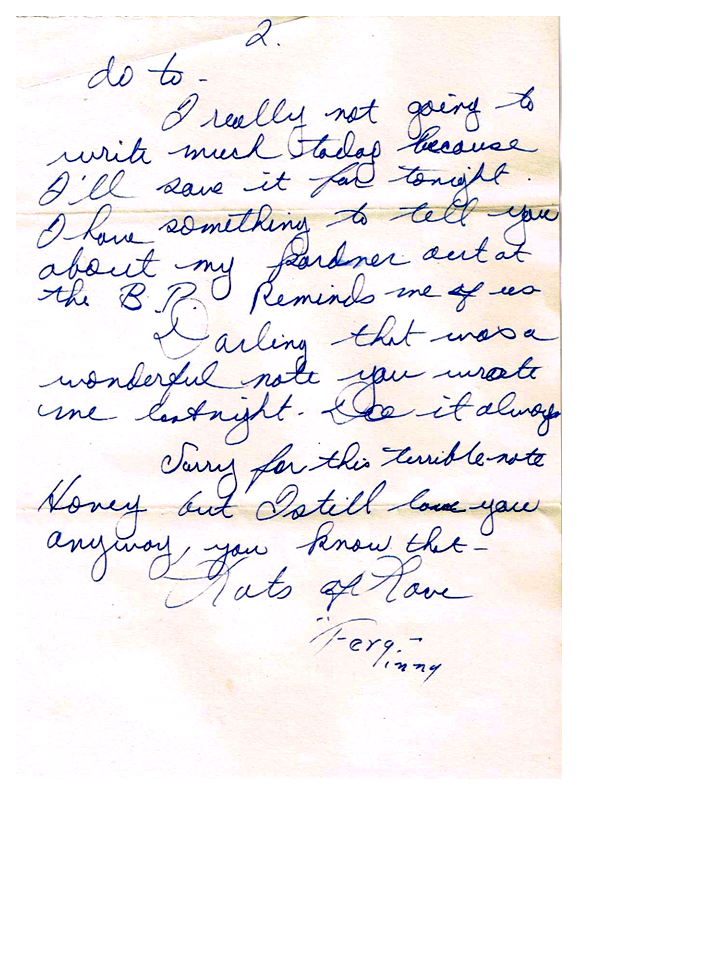 2.
do to -
I really not going to
write much today because
I'll save it for tonight.
I have something to tell you
about my pardner out at
the B.P. Reminds me of us
Darling that was a
wonderful note you wrote
me lastnight. Do it always
Sorry for this terrible note
Honey but I still love you
anyway, you know that -
Lots of Love
"Ferg."
inny